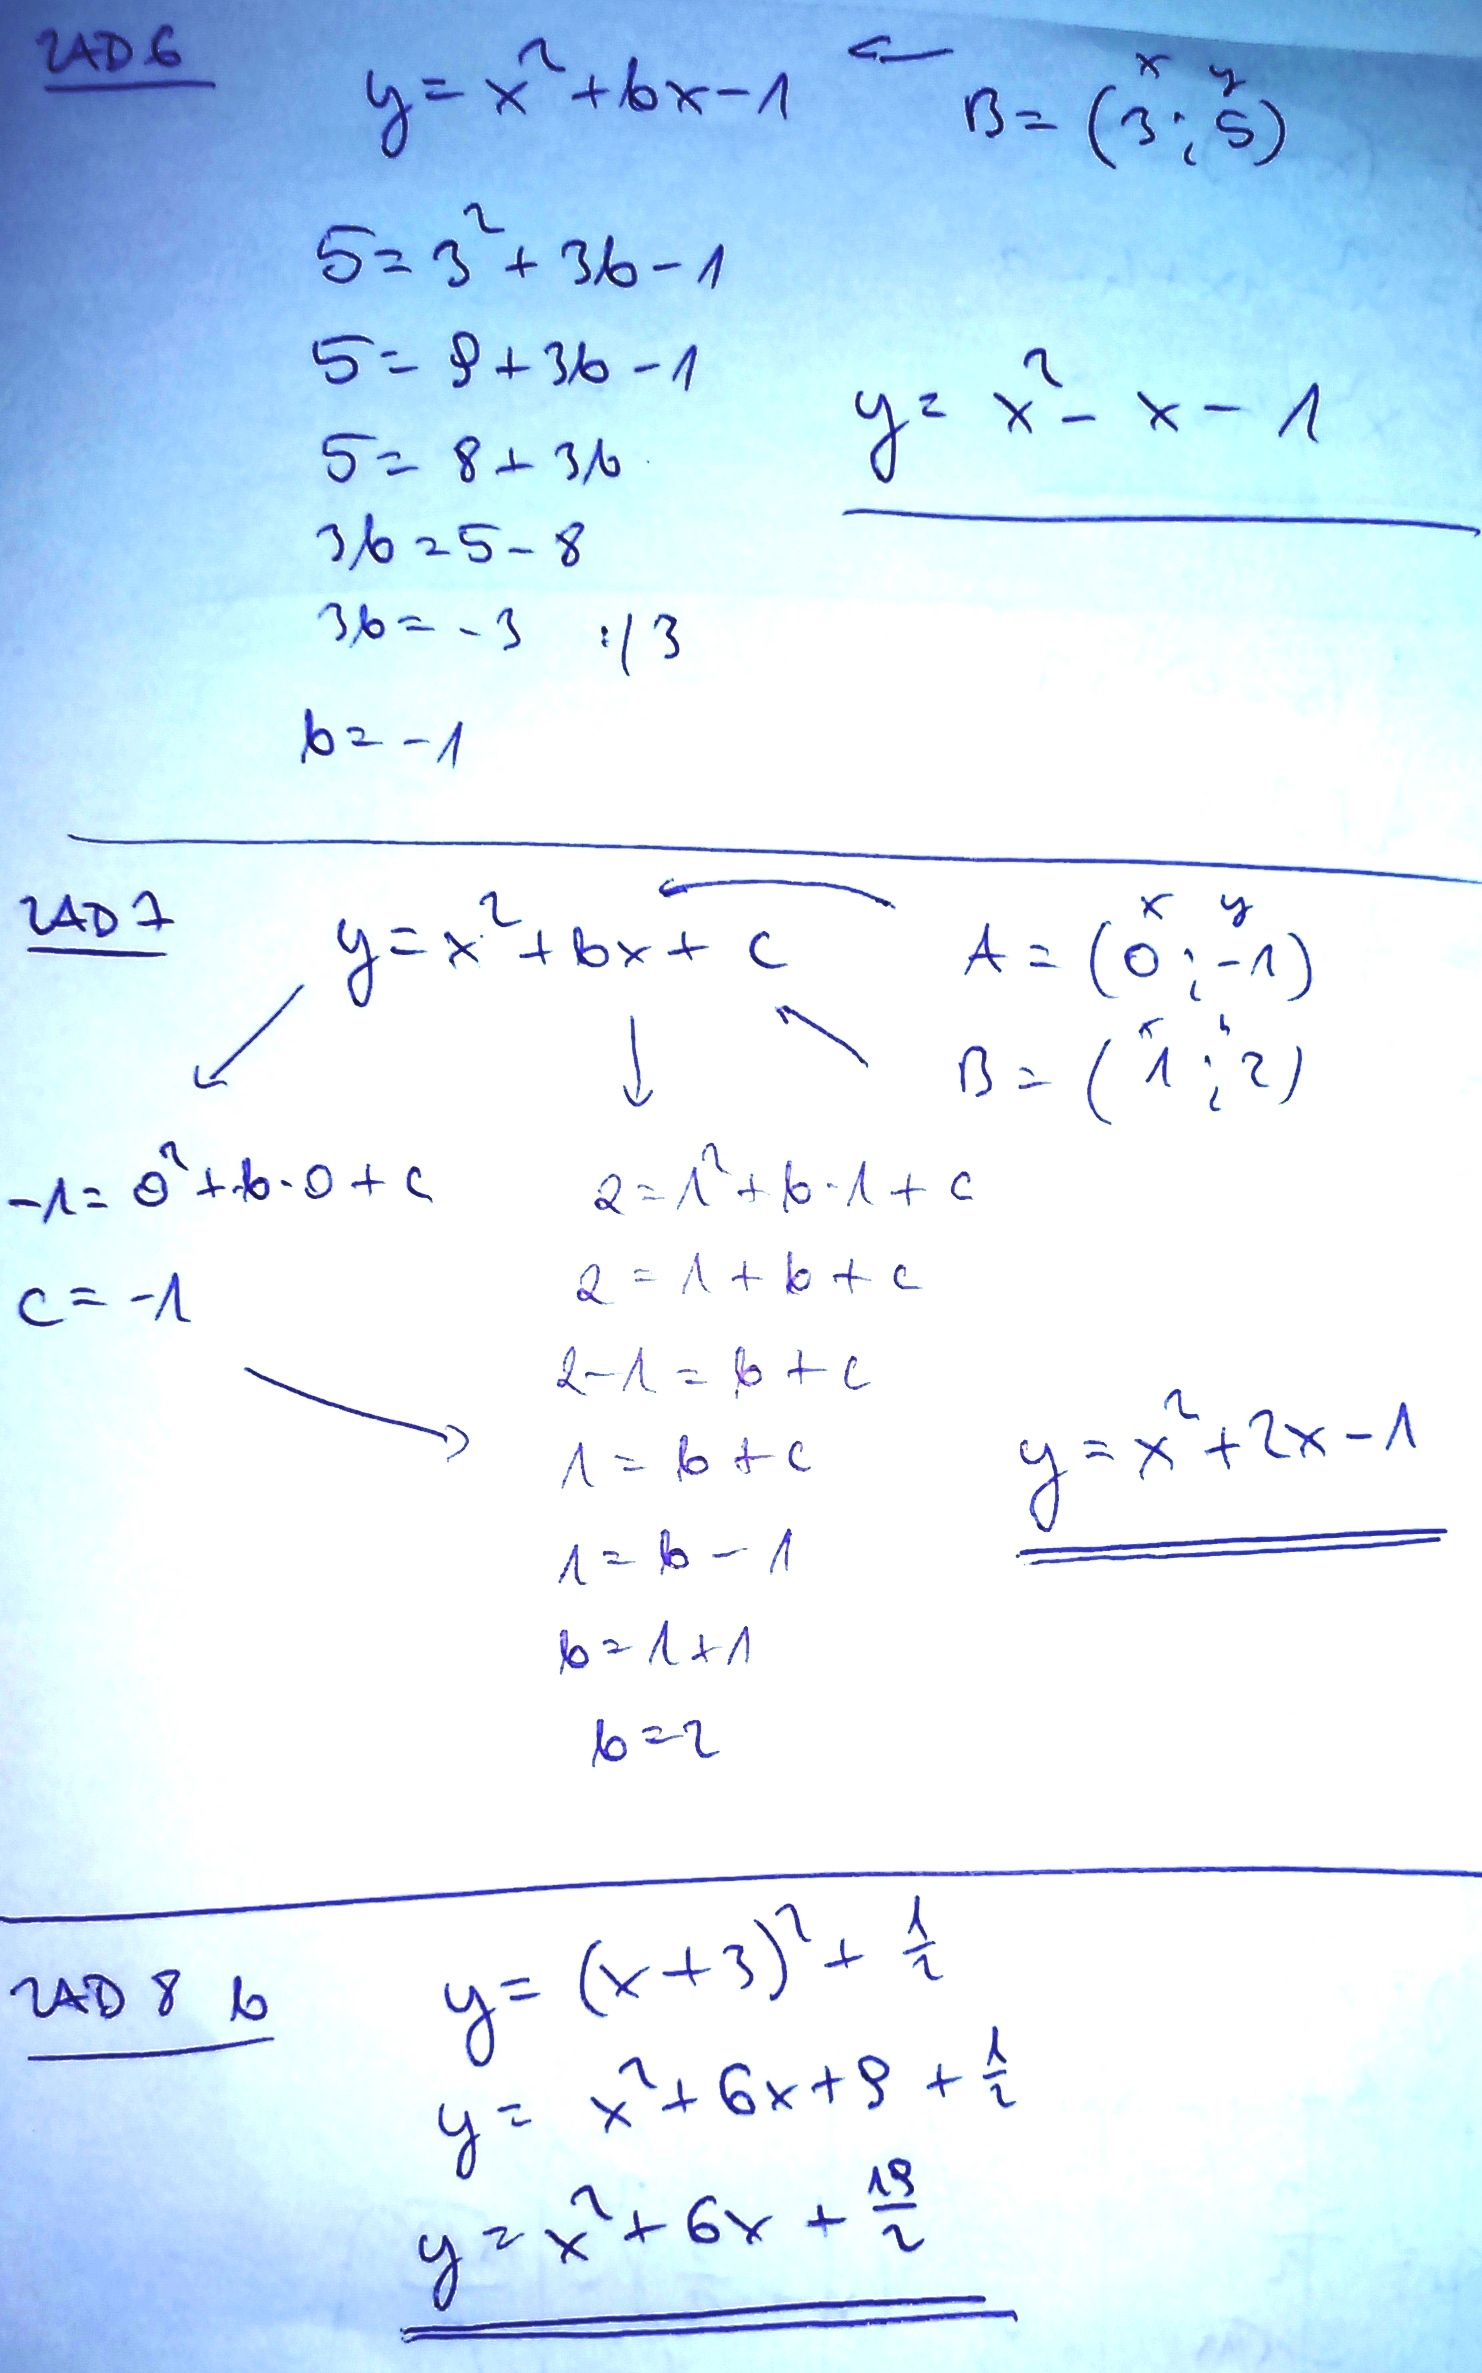 ZAD 6
y = x² + bx - 1
x y
B = (3; 5)
5 = 3² + 3b - 1
5 = 9 + 3b - 1
5 = 8 + 3b
3b = 5 - 8
3b = -3 :/3
b = -1
y = x² - x - 1
ZAD 7
y = x² + bx + c
x y
A = (0; -1)
x y
B = (1; 2)
-1 = 0² + b·0 + c
c = -1
2 = 1² + b·1 + c
2 = 1 + b + c
2 - 1 = b + c
1 = b + c
1 = b - 1
b = 1 + 1
b = 2
y = x² + 2x - 1
ZAD 8 b
y = (x + 3)² + 1/2
y = x² + 6x + 9 + 1/2
y = x² + 6x + 19/2